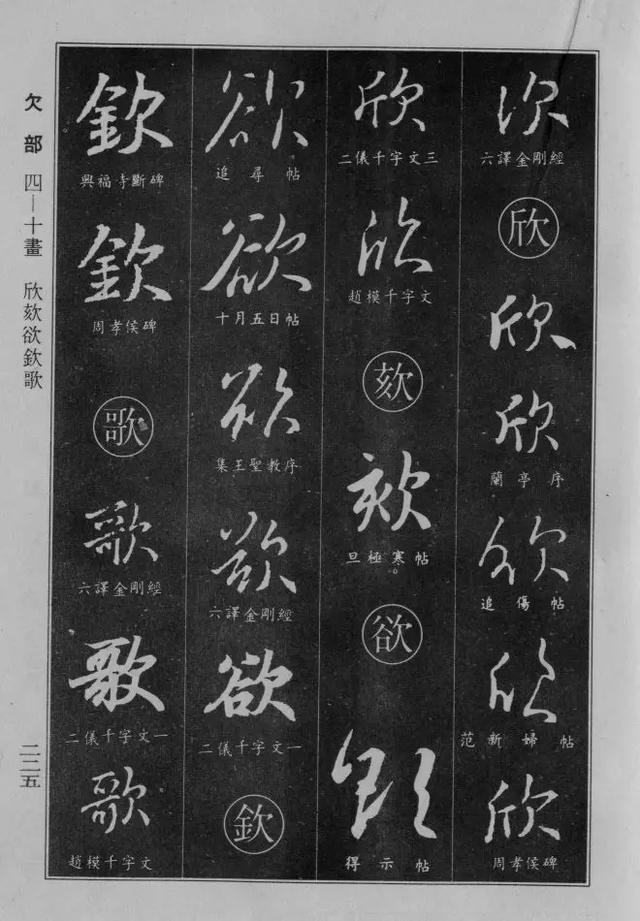 次
六譯金剛經
欣
欣
欣
蘭亭序
欣
追傷帖
欣
范新婦帖
欣
周孝侯碑
欣
二儀千字文三
欣
趙模千字文
欬
欬
旦極寒帖。
欲
欲
得示帖
欲
追尋帖
欲
十月五日帖
欲
集王聖教序
欲
六譯金剛經
欲
二儀千字文一
欽
欽
興福寺斷碑
欽
周孝侯碑
歌
歌
六譯金剛經
歌
二儀千字文一
歌
趙模千字文
欠部 四—十畫 欣欬欲欽歌
二二五